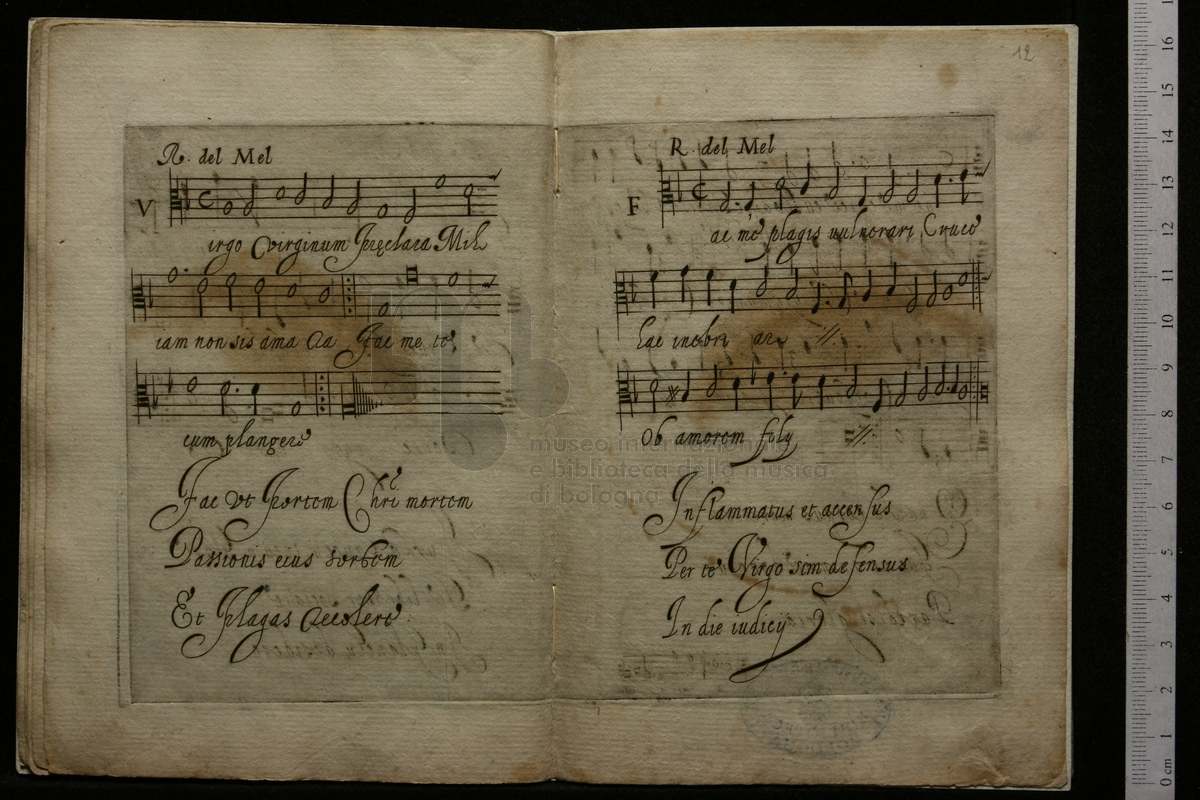 R. del Mel
V
irgo Virginum Preclara Mih
iam non sis ama Ra Fac me te
cum plangere
Fac Vt Portem Chri mortem
Passionis eius sortem
Et Plagas recolere
12
R. del Mel
F
ac me plagis uulnerari Cruce
hac inebri ari
Ob amorem filij
Inflammatus et accensus
Per te Virgo sim defensus
In die iudicij
museo internazionale
e biblioteca della musica
di bologna
0 cm 1 2 3 4 5 6 7 8 9 10 11 12 13 14 15 16